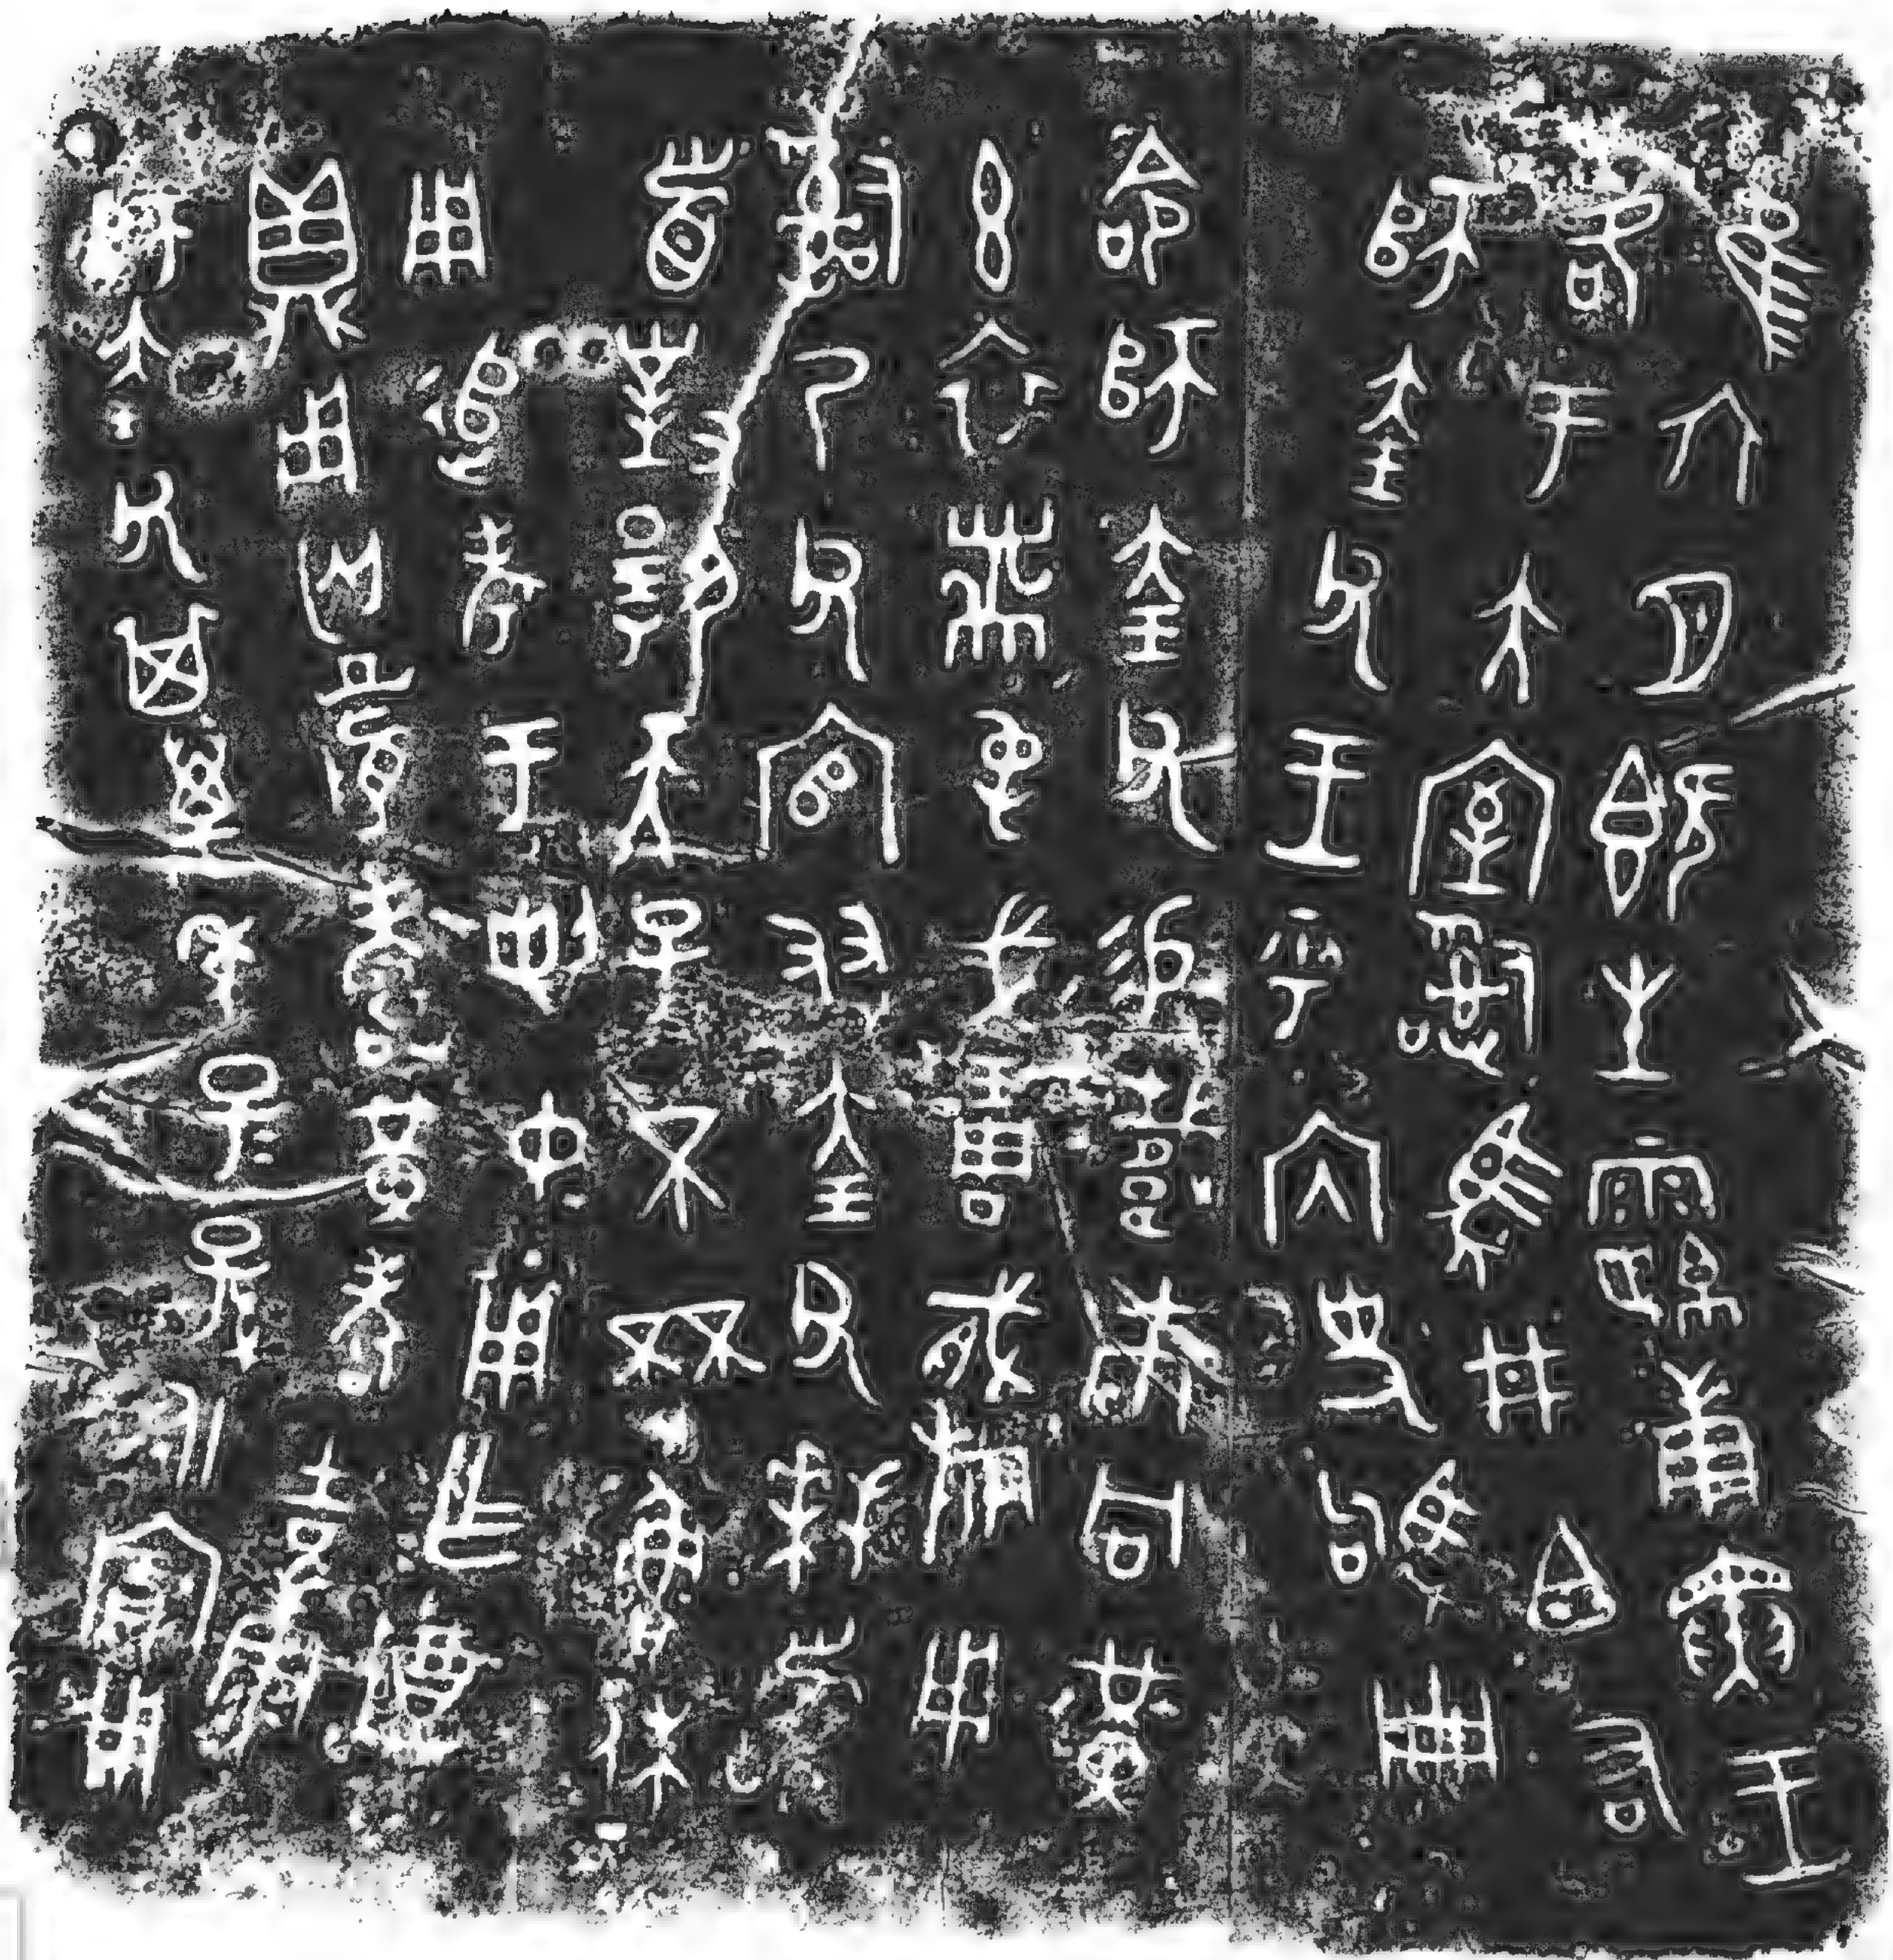 隹六月既生霸庚寅王
各于大室𤔲馬井白右
師奎父王乎內史駒冊
命師奎父易載巿冋黃
玄衣黹屯戈琱𢦏旂用
𤔲乃父官友奎父拜𩒨
首對揚天子不杯魯休
用追考于剌中用乍尊
鼎用匄眉壽黃耇吉康
師奎父其萬年子孫永寶用